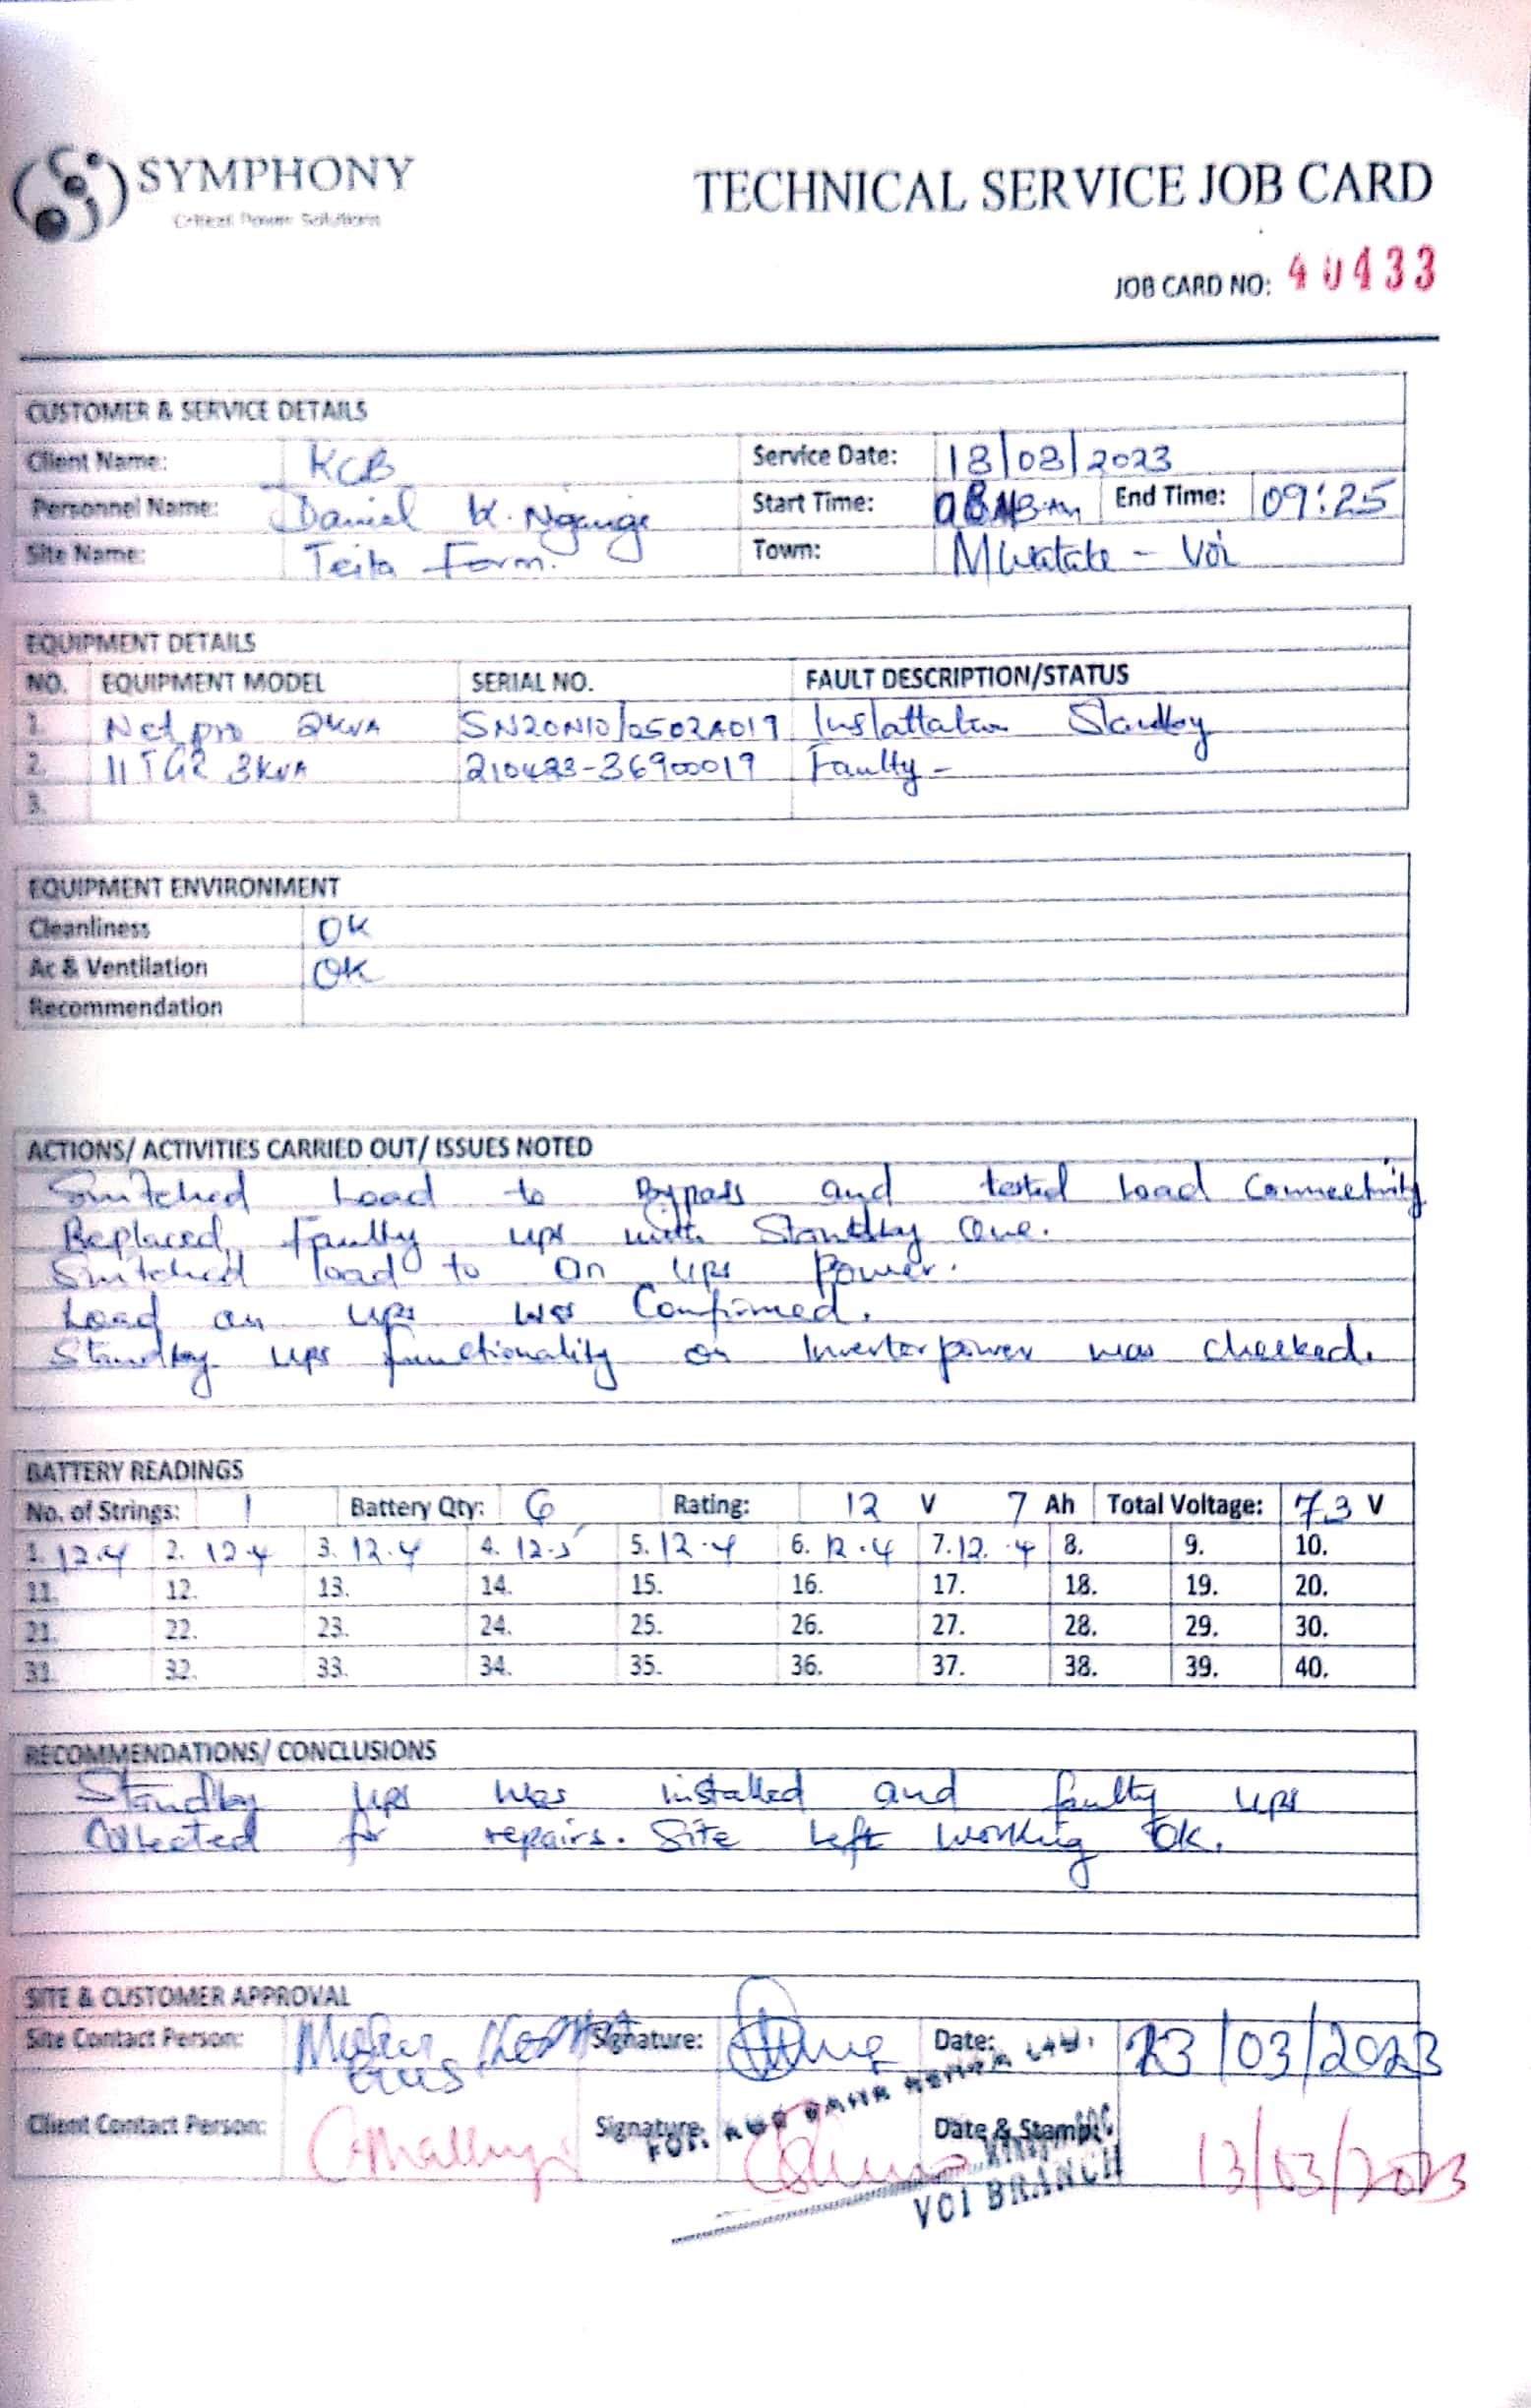 SYMPHONY
Critical Power Solutions
TECHNICAL SERVICE JOB CARD
JOB CARD NO: 40433
CUSTOMER & SERVICE DETAILS
Client Name: KCB Service Date: 13/03/2023
Personnel Name: Daniel K. Ngangi Start Time: End Time: 09:25
Site Name: Teita Farm. Town: Mwatate - Voi
EQUIPMENT DETAILS
NO. EQUIPMENT MODEL SERIAL NO. FAULT DESCRIPTION/STATUS
1. Net pro 2KVA SN20N10/0502A019 Installation Standby
2. 11TG2 3KVA 210423-36900019 Faulty -
3.
EQUIPMENT ENVIRONMENT
Cleanliness OK
Ac & Ventilation OK
Recommendation
ACTIONS/ ACTIVITIES CARRIED OUT/ ISSUES NOTED
Switched Load to Bypass and tested load Connectivity
Replaced Faulty ups with Standby One.
Switched load to on ups Power.
Load on ups was Confirmed.
Standby ups functionality on Inverter power was checked.
BATTERY READINGS
No. of Strings: 1 Battery Qty: 6 Rating: 12 V 7 Ah Total Voltage: 73 V
1. 12.4 2. 12.4 3. 12.4 4. 12.5 5. 12.4 6. 12.4 7. 12.4 8. 9. 10.
11. 12. 13. 14. 15. 16. 17. 18. 19. 20.
21. 22. 23. 24. 25. 26. 27. 28. 29. 30.
31. 32. 33. 34. 35. 36. 37. 38. 39. 40.
RECOMMENDATIONS/ CONCLUSIONS
Standby ups was installed and faulty ups
Collected for repairs. Site left working OK.
SITE & CUSTOMER APPROVAL
Site Contact Person: Signature: Date: 13/03/2023
Client Contact Person: Signature: Date & Stamp: 13/03/2023
VOI BRANCH